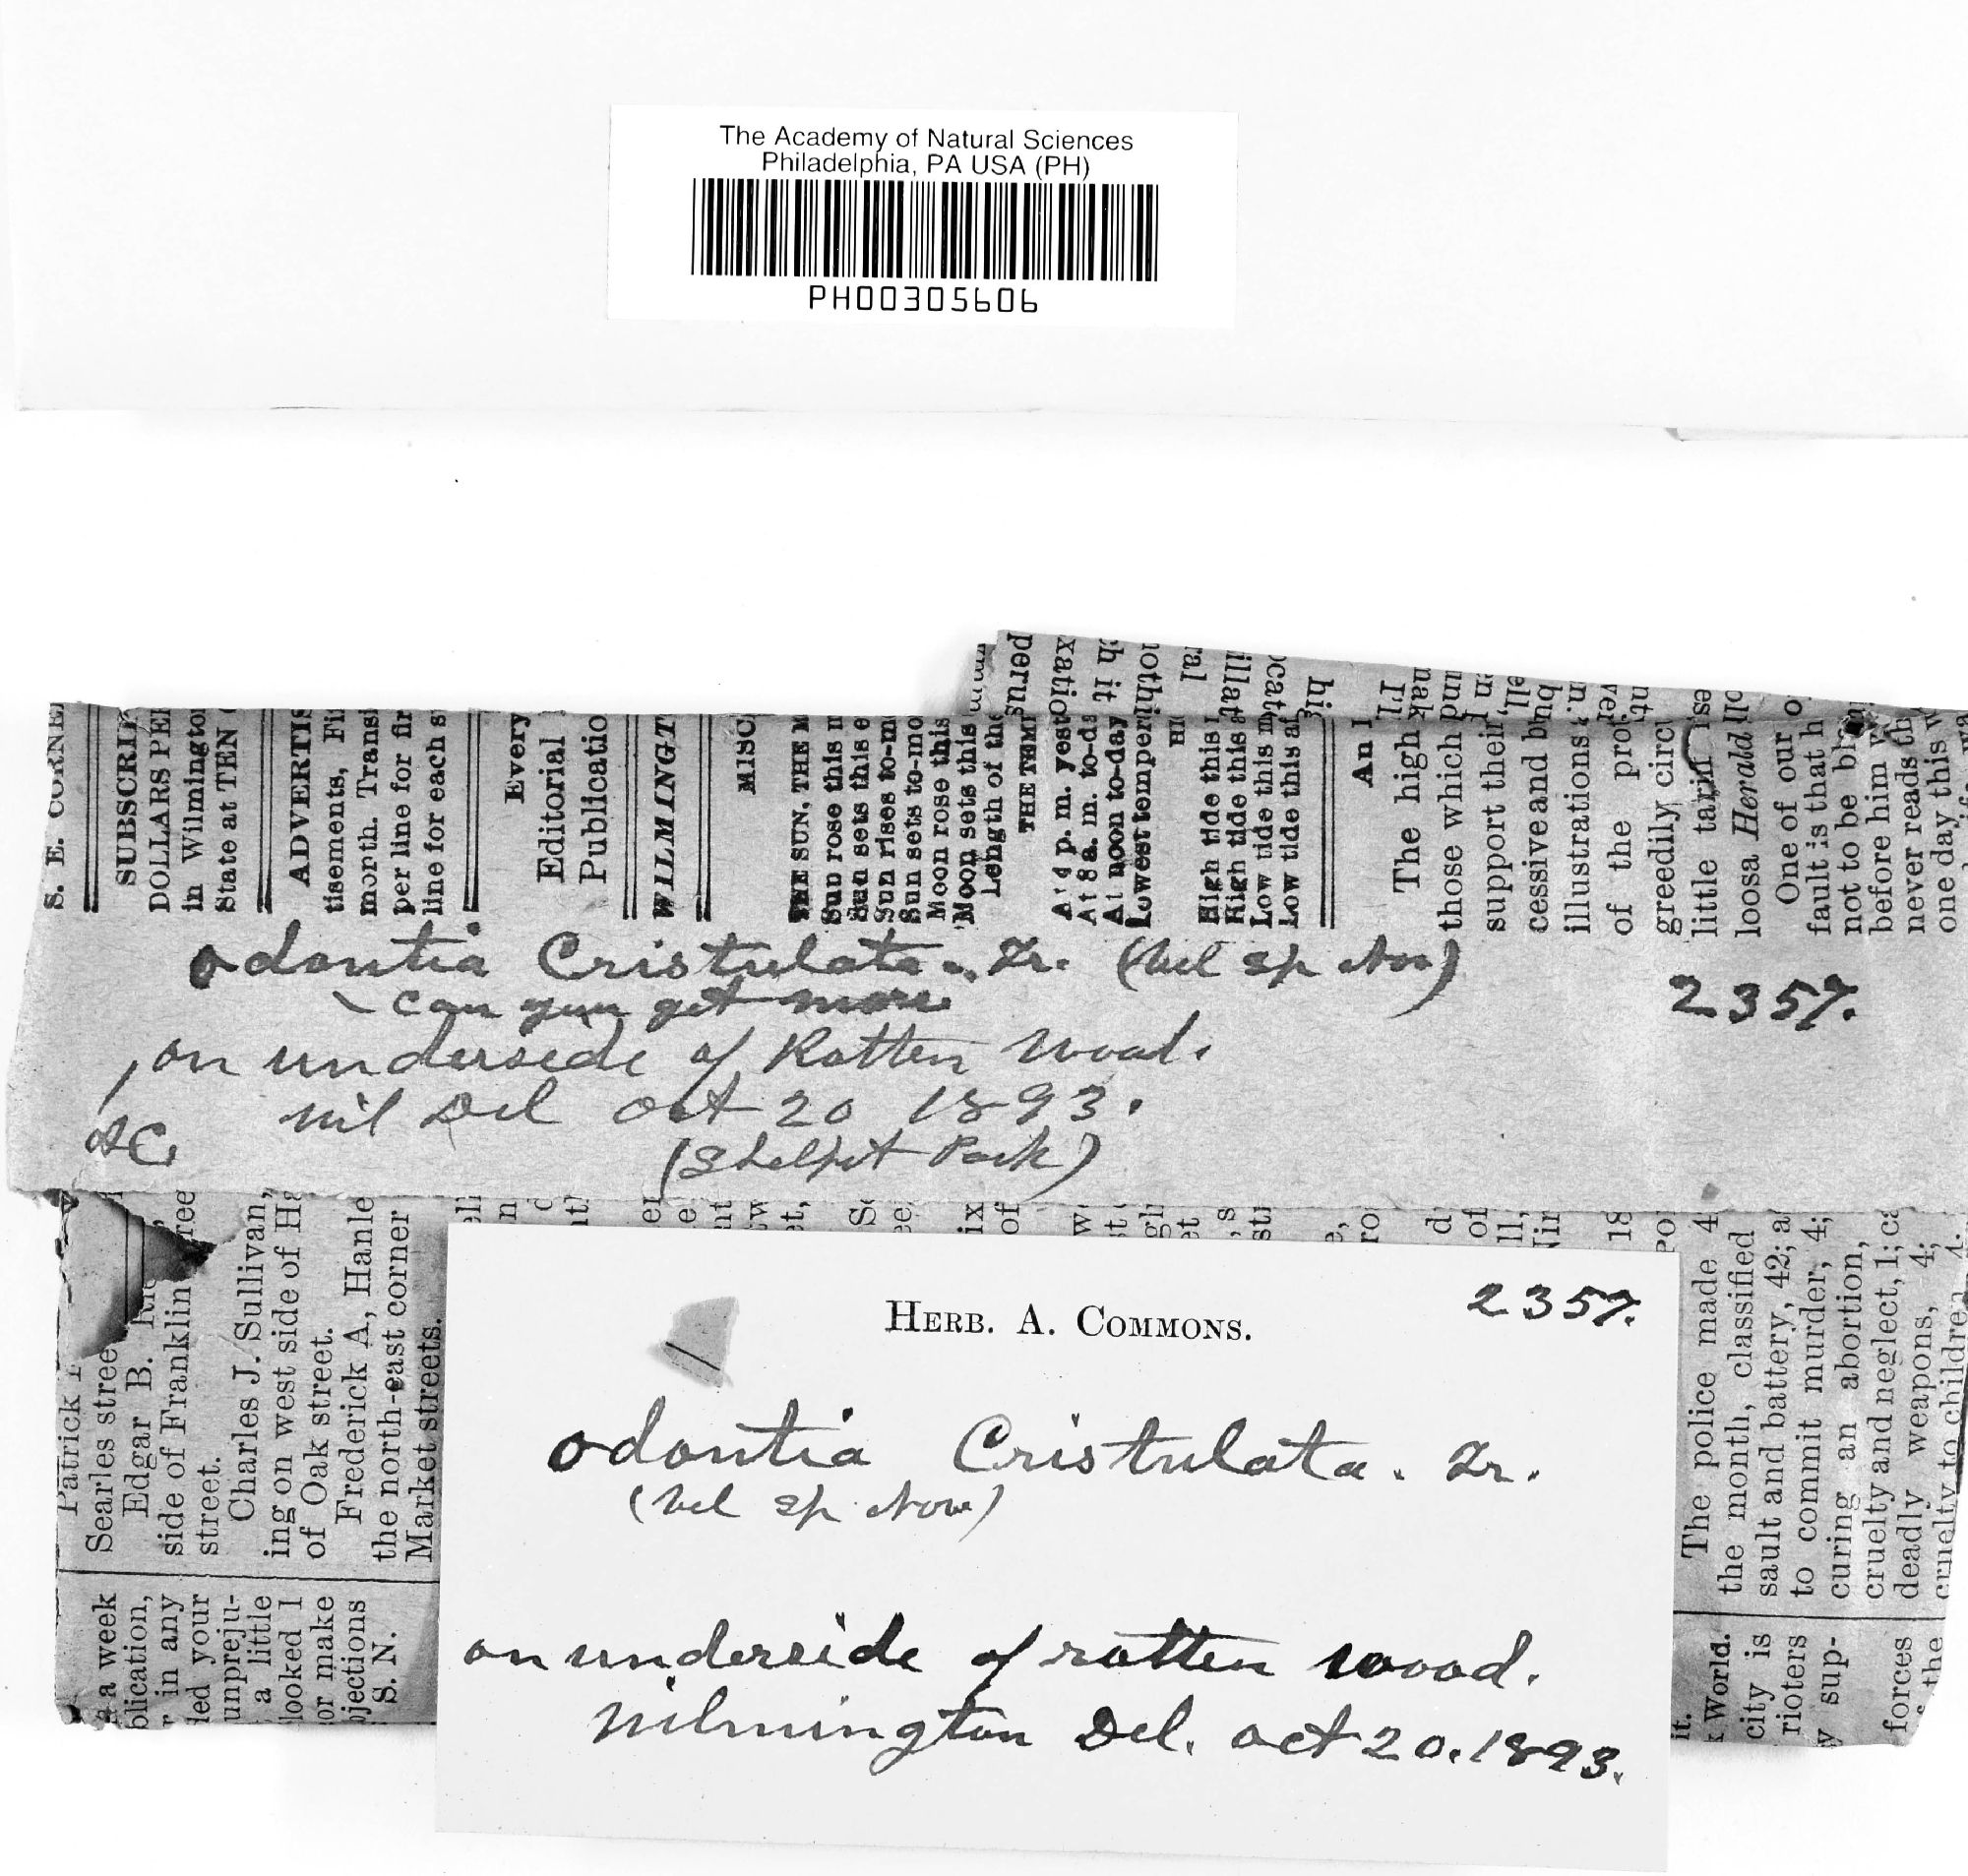 The Academy of Natural Sciences
Philadelphia, PA USA (PH)
PH00305606
S. E. CORNE
SUBSCRI
DOLLARS PE
in Wilmingto
State at TEN
ADVERTIS
tisements, Fi
month. Transi
per line for fir
line for each s
Every
Editorial
Publicatio
WILMINGT
MISC
THE SUN, THE M
Sun rose this m
Sun sets this e
Sun rises to-m
Sun sets to-mo
Moon rose this
Moon sets this
Length of the
THE TEMP
At 4 p. m. yest
At 8 a. m. to-da
At noon to-day
Lowest temper
High tide this
High tide this
Low tide this m
Low tide this af
An
The high
those which
support their
cessive and
illustrations
of the pro
greedily circu
little tarin
loosa Herald
One of our
fault is that h
not to be bl
before him
never reads th
one day this w
odontia Cristulata. Fr. (vel sp Nov)
2357.
can you get more
on underside of Rotten Wood.
Wil Del Oct 20 1893.
AC
(Shelpot Park)
Patrick
Searles stree
Edgar B.
side of Franklin
street.
Charles J. Sullivan,
ing on west side of Ha
of Oak street.
Frederick A, Hanle
the north-east corner
Market streets.
a week
blication,
r in any
led your
unpreju-
a little
looked l
or make
bjections
S. N.
HERB. A. COMMONS.
2357.
odontia Cristulata. Fr.
(vel sp. Nov)
on underside of rotten wood.
Wilmington Del. Oct 20. 1893.
The police made 4
the month, classified
sault and battery, 42; a
to commit murder, 4;
curing an abortion,
cruelty and neglect, 1; ca
deadly weapons, 4;
cruelty to children, 4.
it.
World.
city is
rioters
y sup-
forces
the